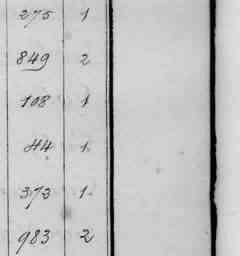 275 1
849 2
108 1
44 1
373 1
983 2